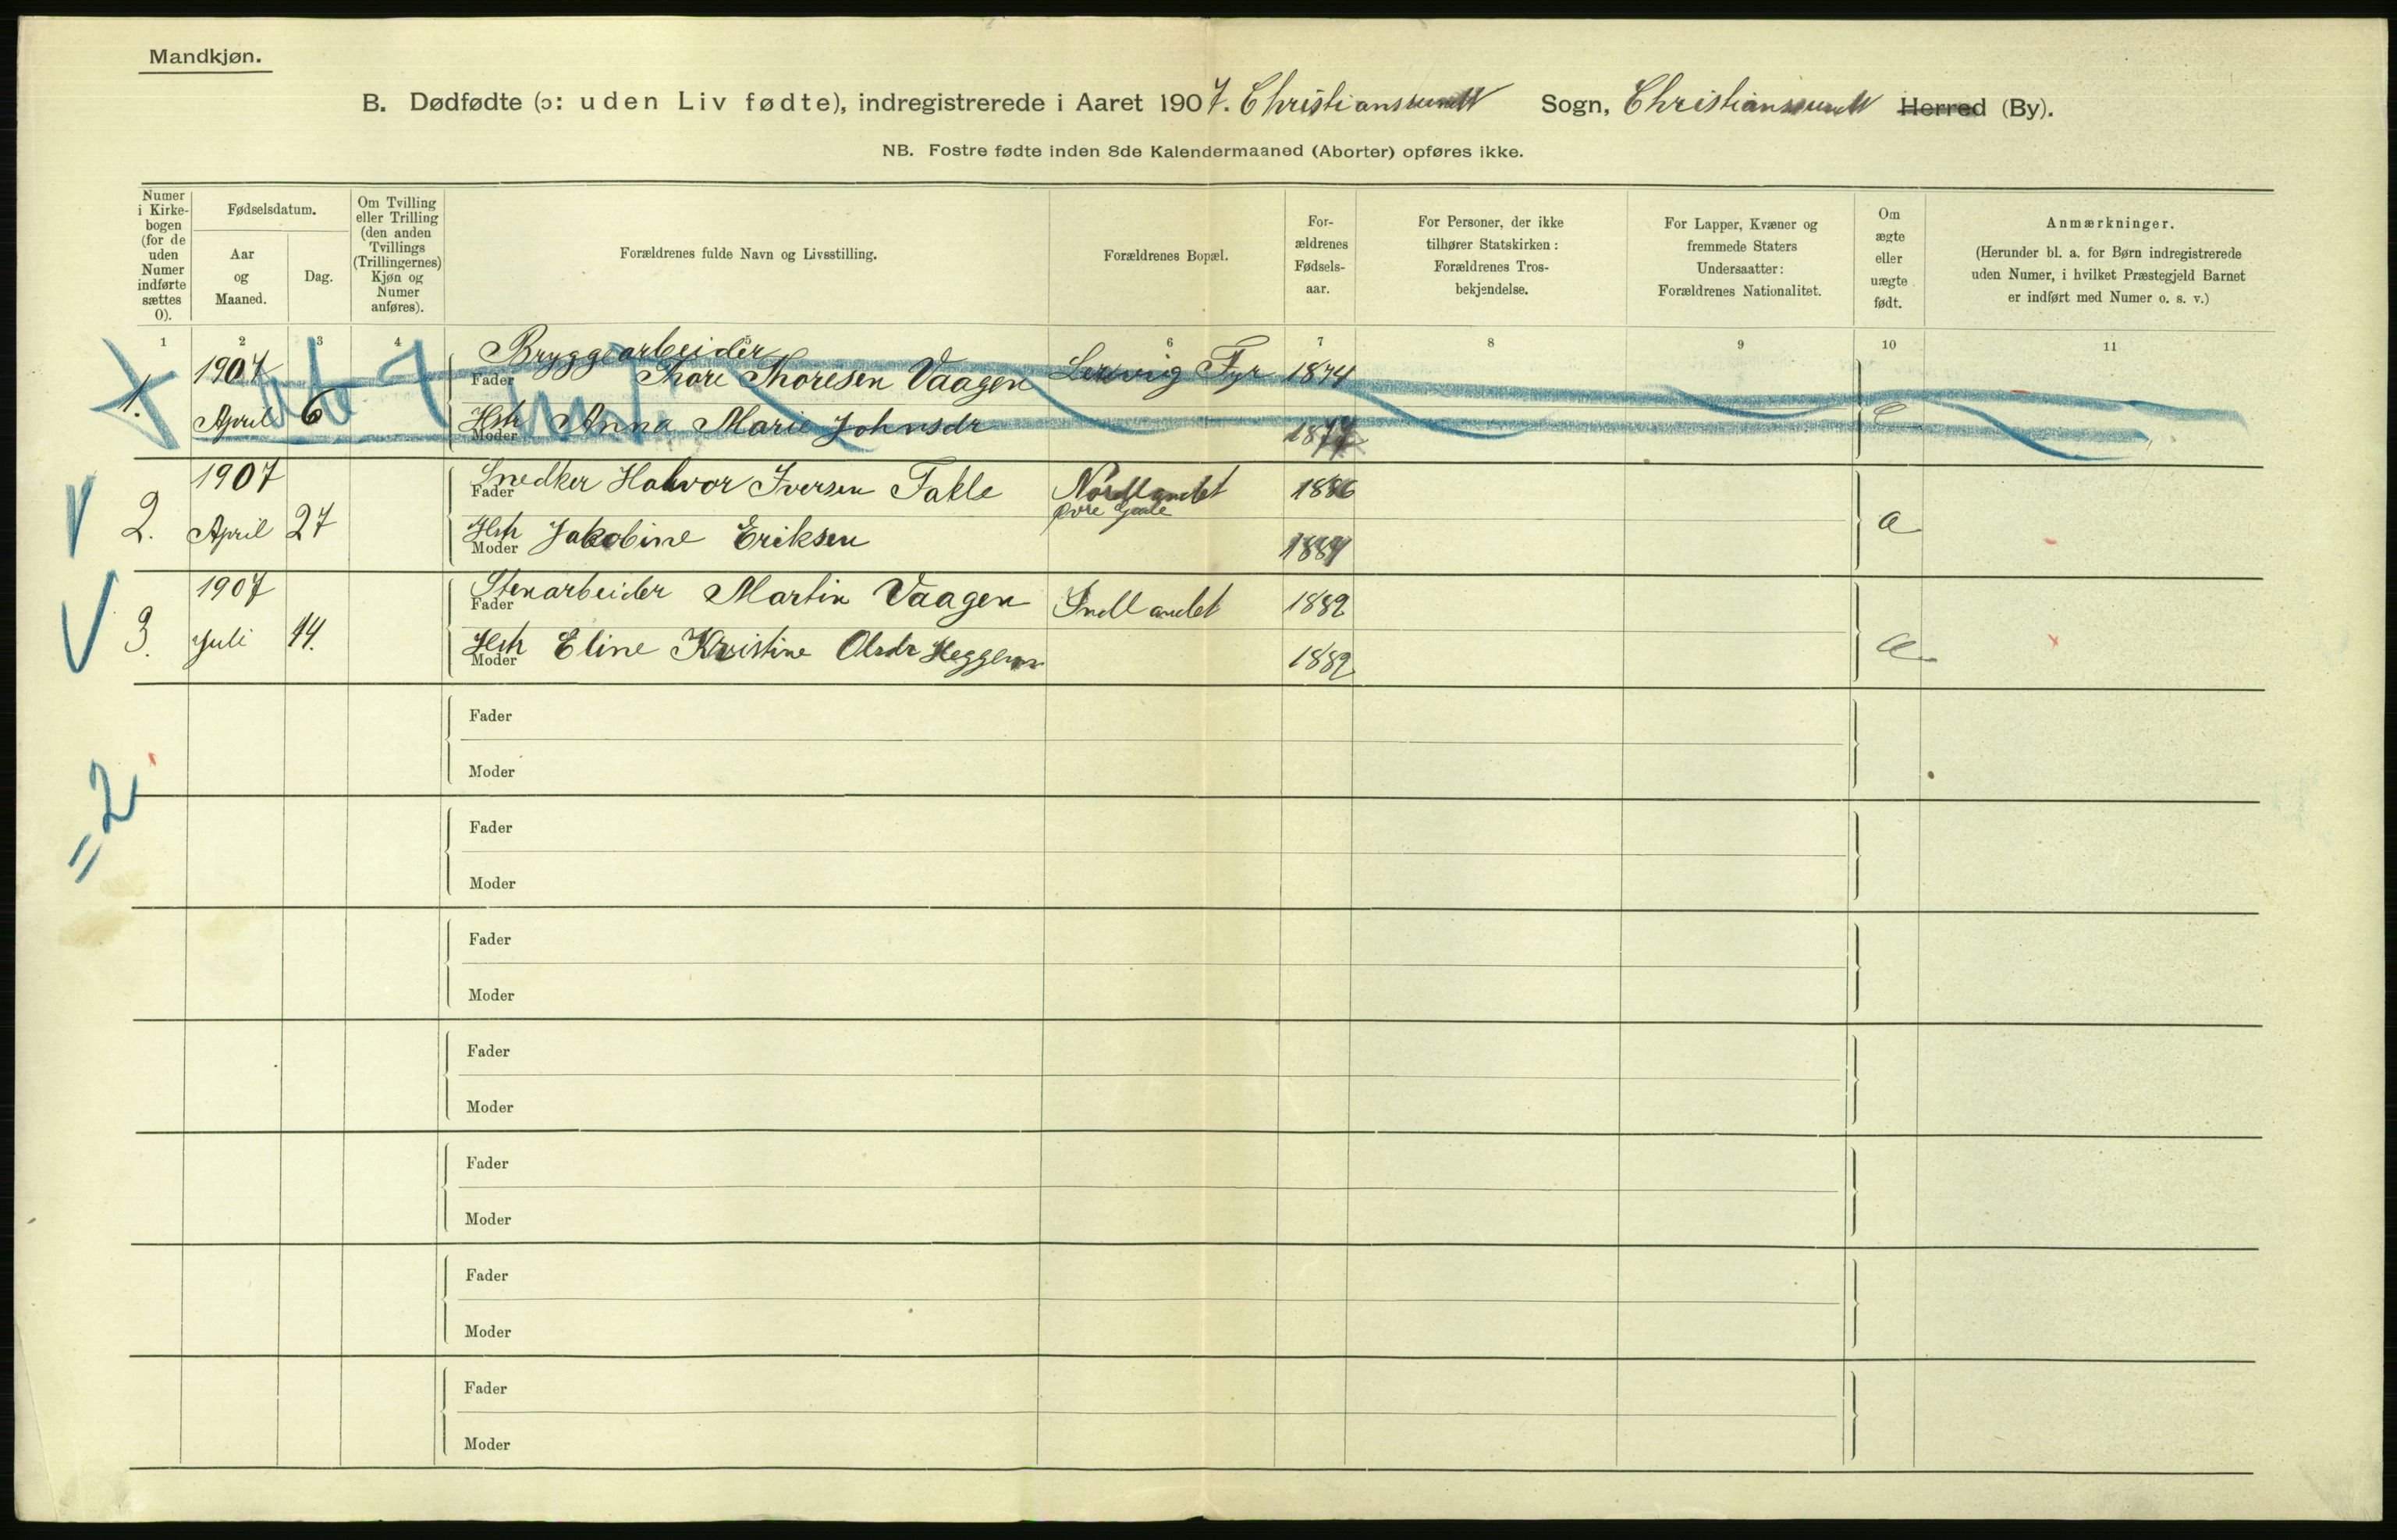 Mandkjøn.
B. Dødfødte (ɔ: uden Liv fødte), indregistrerede i Aaret 1907. Christianssund Sogn, Christianssund Herred (By).
NB. Fostre fødte inden 8de Kalendermaaned (Aborter) opføres ikke.
Numer i Kirke-bogen (for de uden Numer indførte sættes 0).
Fødselsdatum.
Aar og Maaned.
Dag.
Om Tvilling eller Trilling (den anden Tvillings (Trillingernes) Kjøn og Numer anføres).
Forældrenes fulde Navn og Livsstilling.
Forældrenes Bopæl.
For-ældrenes Fødsels-aar.
For Personer, der ikke tilhører Statskirken: Forældrenes Tros-bekjendelse.
For Lapper, Kvæner og fremmede Staters Undersaatter: Forældrenes Nationalitet.
Om ægte eller uægte født.
Anmærkninger.
(Herunder bl. a. for Børn indregistrerede uden Numer, i hvilket Præstegjeld Barnet er indført med Numer o. s. v.)
1 2 3 4 6 7 8 9 10 11
Bryggearbeider
1. 1907 Fader Thore Thoresen Vaagen Fyr 1874
April 6 Hstr Moder Anna Marie Johnsdr
1907 Fader Snedker Halvor Iversen Fakle Nordlandet 1886
Øvre
2. April 27 Hstr Moder Jakobine Eriksen a
1907 Fader Stenarbeider Martin Vaagen Indlandet 1882
3. Juli 14. Hstr Moder Eline Kristine Olsdr 1882
Fader
Moder
= 2
Fader
Moder
Fader
Moder
Fader
Moder
Fader
Moder
Fader
Moder
Fader
Moder